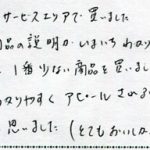 サービスエリアで買いました
品の説明がいまいちわかり
、1番少ない商品を買いまし
わかりやすくアピールされる
思いました(とてもおいしか